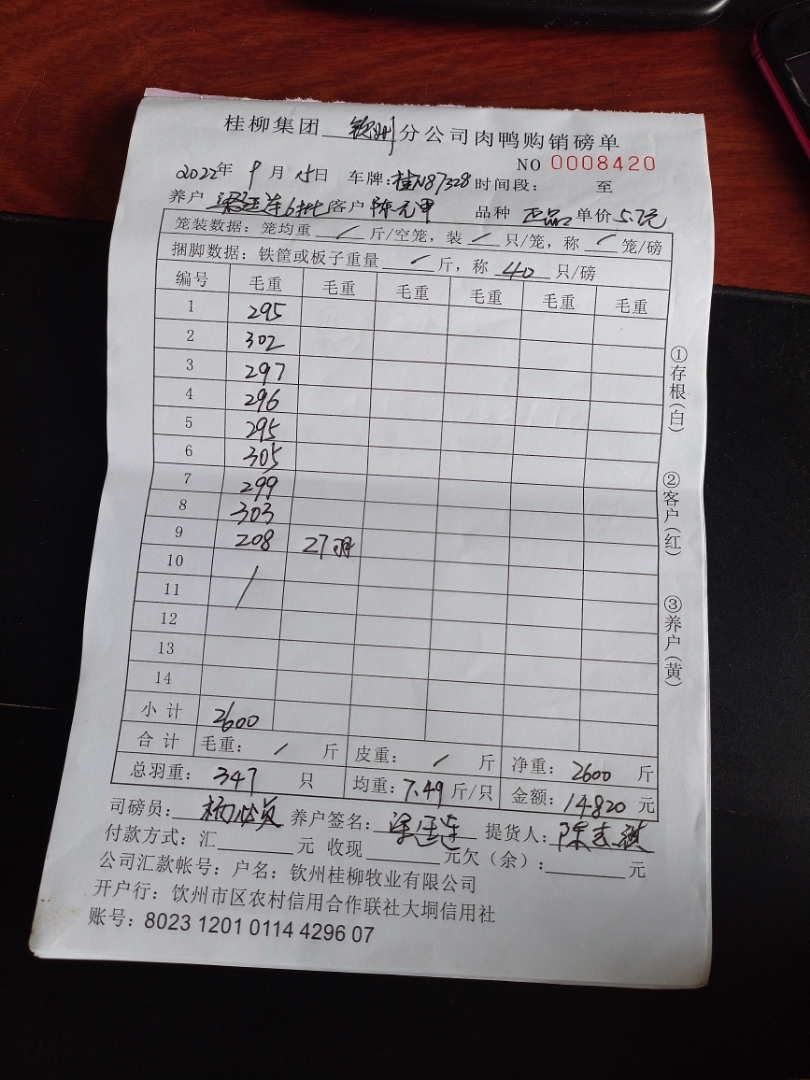 桂柳集团 钦州 分公司肉鸭购销磅单
NO 0008420
2022年 9 月 15日 车牌:桂N87328 时间段: 至
养户 梁廷莲6批 客户 陈元甲 品种 正品 单价 5.7元
笼装数据:笼均重 / 斤/空笼,装 / 只/笼,称 / 笼/磅
捆脚数据:铁筐或板子重量 / 斤,称 40 只/磅
编号 毛重 毛重 毛重 毛重 毛重 毛重
1 295
2 302
3 297
4 296
5 295
6 305
7 299
8 303
9 208 27羽
10 /
11
12
13
14
小计 2600
合计 毛重: / 斤 皮重: / 斤 净重: 2600 斤
总羽重: 347 只 均重: 7.49 斤/只 金额: 14820 元
司磅员: 养户签名: 提货人:
付款方式:汇 元 收现 元欠(余): 元
公司汇款帐号:户名:钦州桂柳牧业有限公司
开户行:钦州市区农村信用合作联社大垌信用社
账号:8023 1201 0114 4296 07
①存根(白)
②客户(红)
③养户(黄)